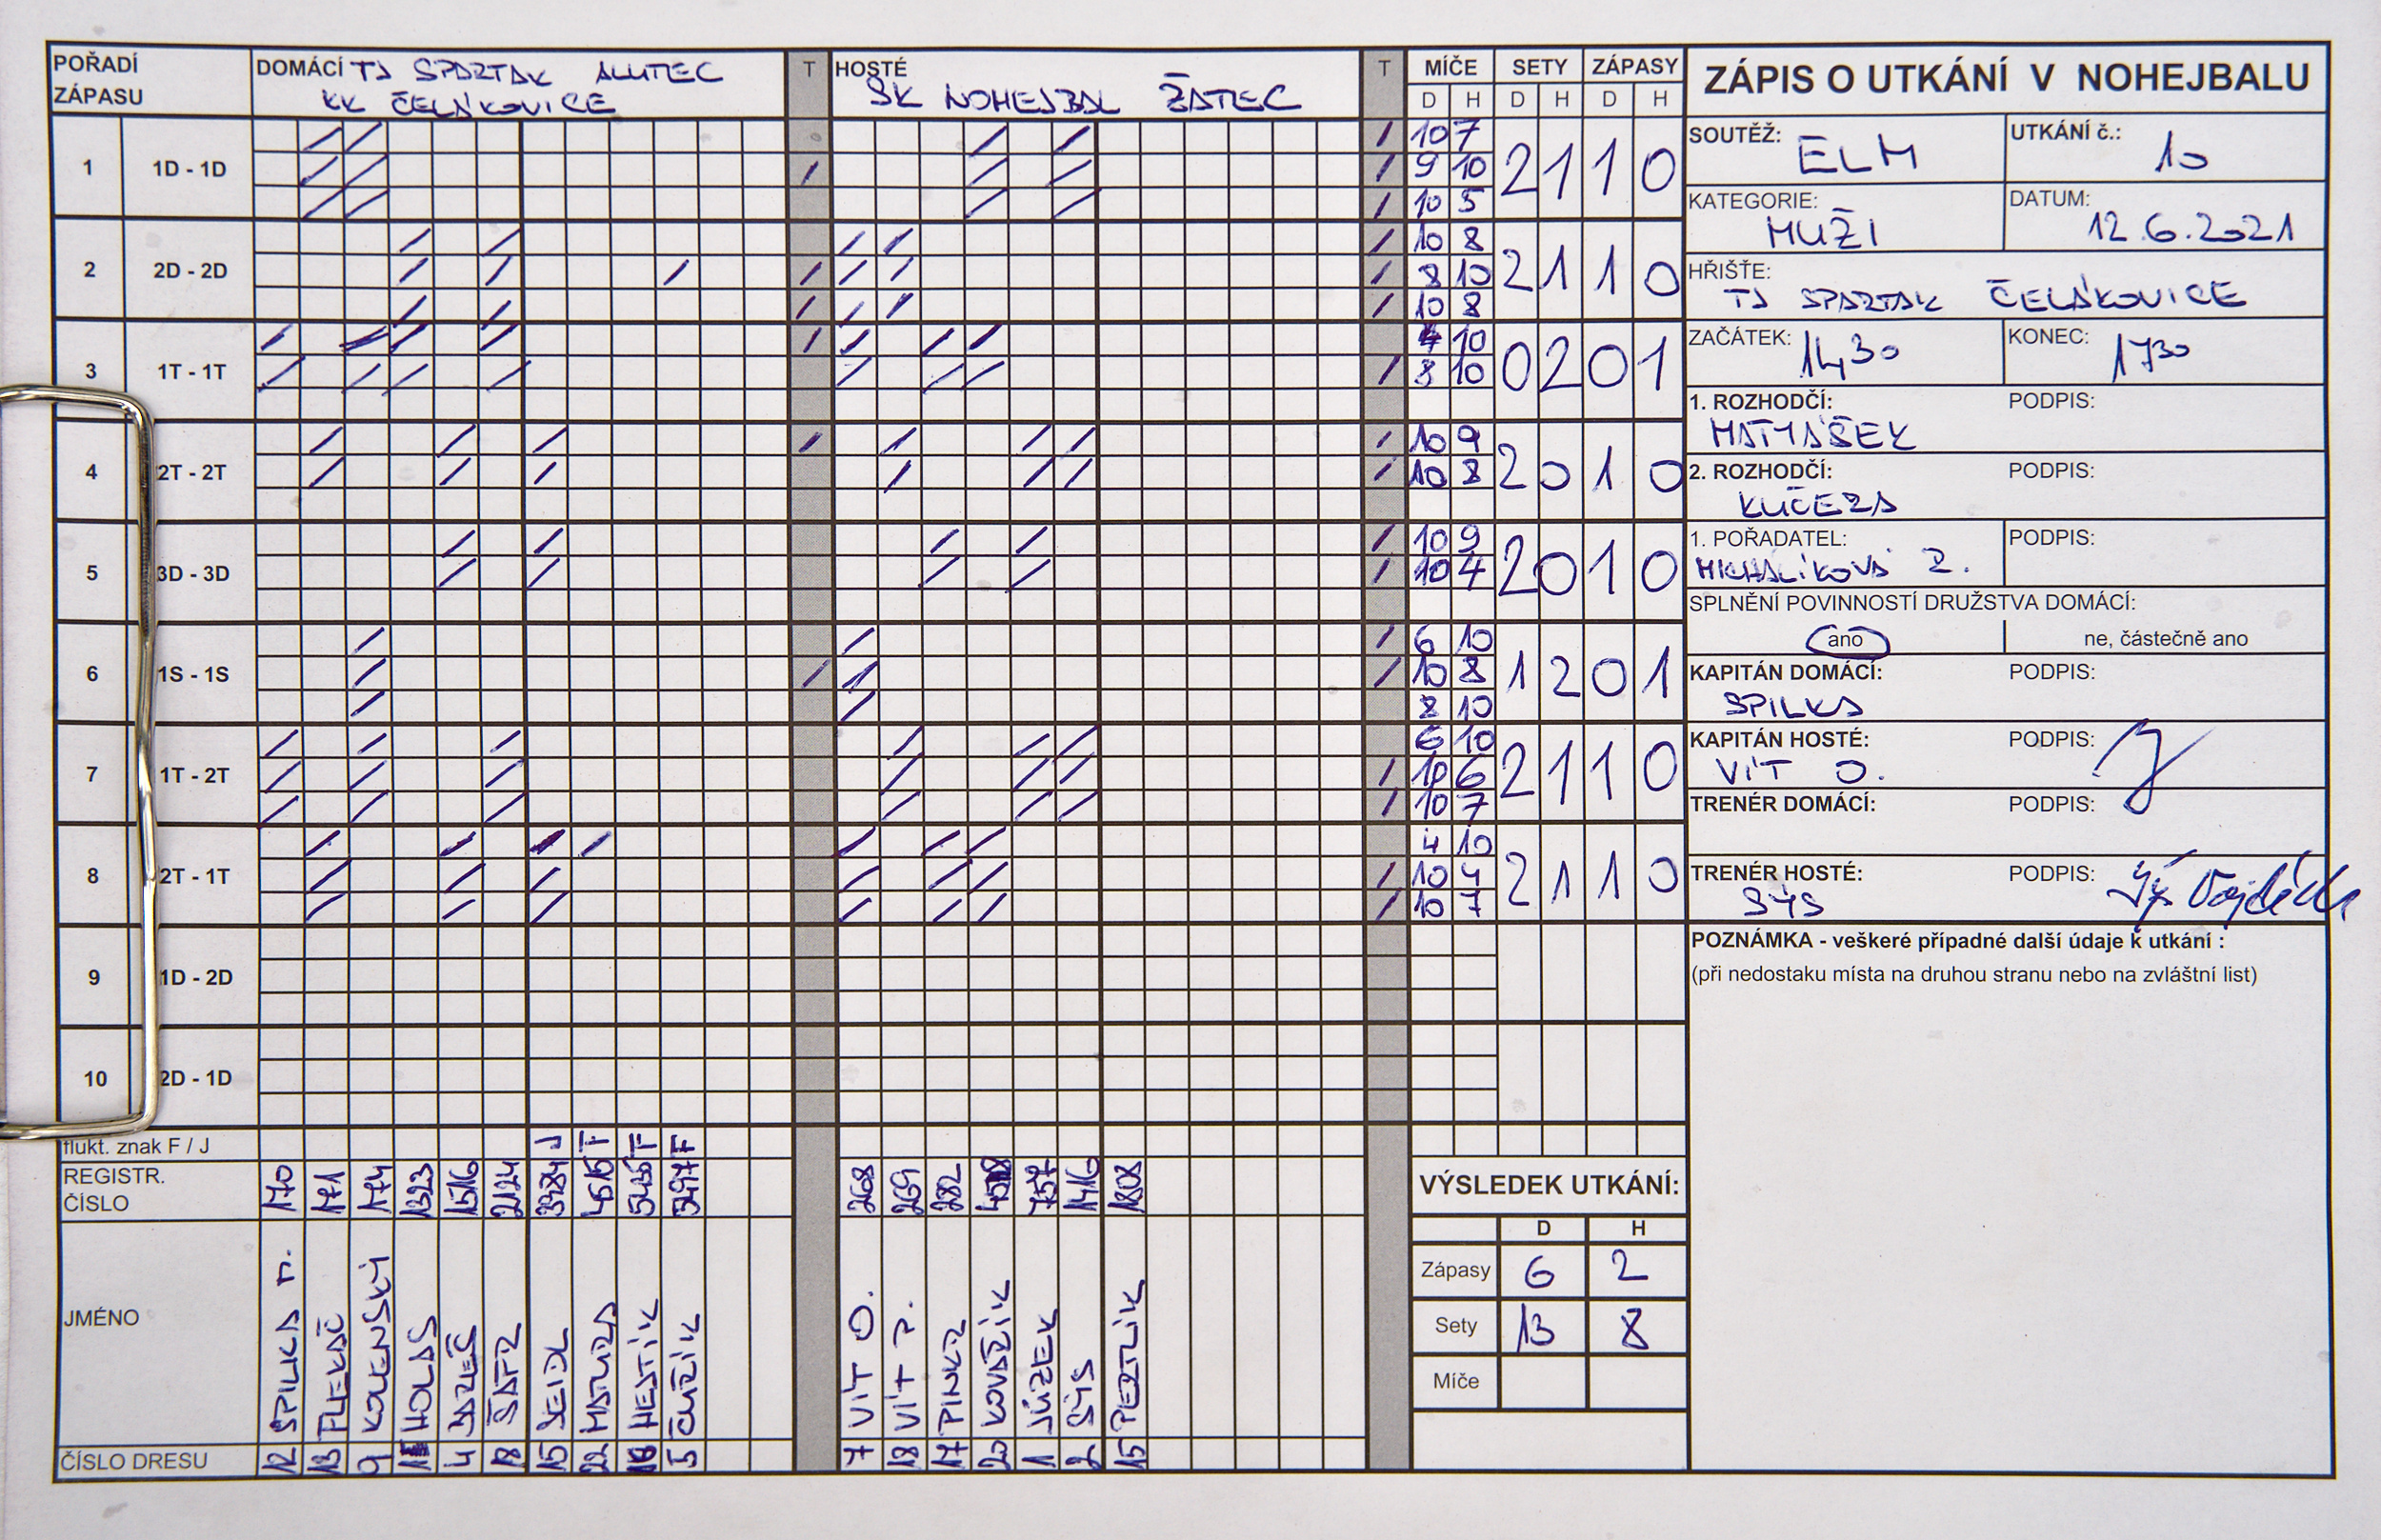 POŘADÍ ZÁPASU
DOMÁCÍ TJ SPARTAK ALUTEC
KK ČELÁKOVICE
T
HOSTÉ
SK NOHEJBAL ŽATEC
T
MÍČE SETY ZÁPASY
D H D H D H
1 1D - 1D
10 7
9 10
10 5
2 1 1 0
2 2D - 2D
10 8
8 10
10 8
2 1 1 0
3 1T - 1T
4 10
8 10
0 2 0 1
4 2T - 2T
10 9
10 8
2 0 1 0
5 3D - 3D
10 9
10 4
2 0 1 0
6 1S - 1S
6 10
10 8
8 10
1 2 0 1
7 1T - 2T
6 10
10 6
10 7
2 1 1 0
8 2T - 1T
4 10
10 4
10 7
2 1 1 0
9 1D - 2D
10 2D - 1D
flukt. znak F / J
J F F F
REGISTR. ČÍSLO
170 171 174 1323 1516 2124 3484 4515
268 269 282 1416 1808
JMÉNO
SPILKA M. FLEKAČ KOLENSKÝ HOLAS BAREŠ ŠATR SEIDL MATURA HESTÍK CUŘÍK
VÍT O. VÍT P. PINKR KOVAŘÍK JŮZEK SÝS PERTLÍK
ČÍSLO DRESU
12 13 9 4 18 15 22 5
7 18 17 20 1 2 15
VÝSLEDEK UTKÁNÍ:
D H
Zápasy 6 2
Sety 13 8
Míče
ZÁPIS O UTKÁNÍ V NOHEJBALU
SOUTĚŽ: ELM
UTKÁNÍ č.: 10
KATEGORIE: MUŽI
DATUM: 12.6.2021
HŘIŠTĚ:
TJ SPARTAK ČELÁKOVICE
ZAČÁTEK: 1430
KONEC: 1730
1. ROZHODČÍ: PODPIS:
MATYÁŠEK
2. ROZHODČÍ: PODPIS:
KUČERA
1. POŘADATEL: PODPIS:
MICHALÍKOVÁ R.
SPLNĚNÍ POVINNOSTÍ DRUŽSTVA DOMÁCÍ:
ano ne, částečně ano
KAPITÁN DOMÁCÍ: PODPIS:
SPILKA
KAPITÁN HOSTÉ: PODPIS:
VÍT O.
TRENÉR DOMÁCÍ: PODPIS:
TRENÉR HOSTÉ: PODPIS:
SÝS
POZNÁMKA - veškeré případné další údaje k utkání :
(při nedostaku místa na druhou stranu nebo na zvláštní list)